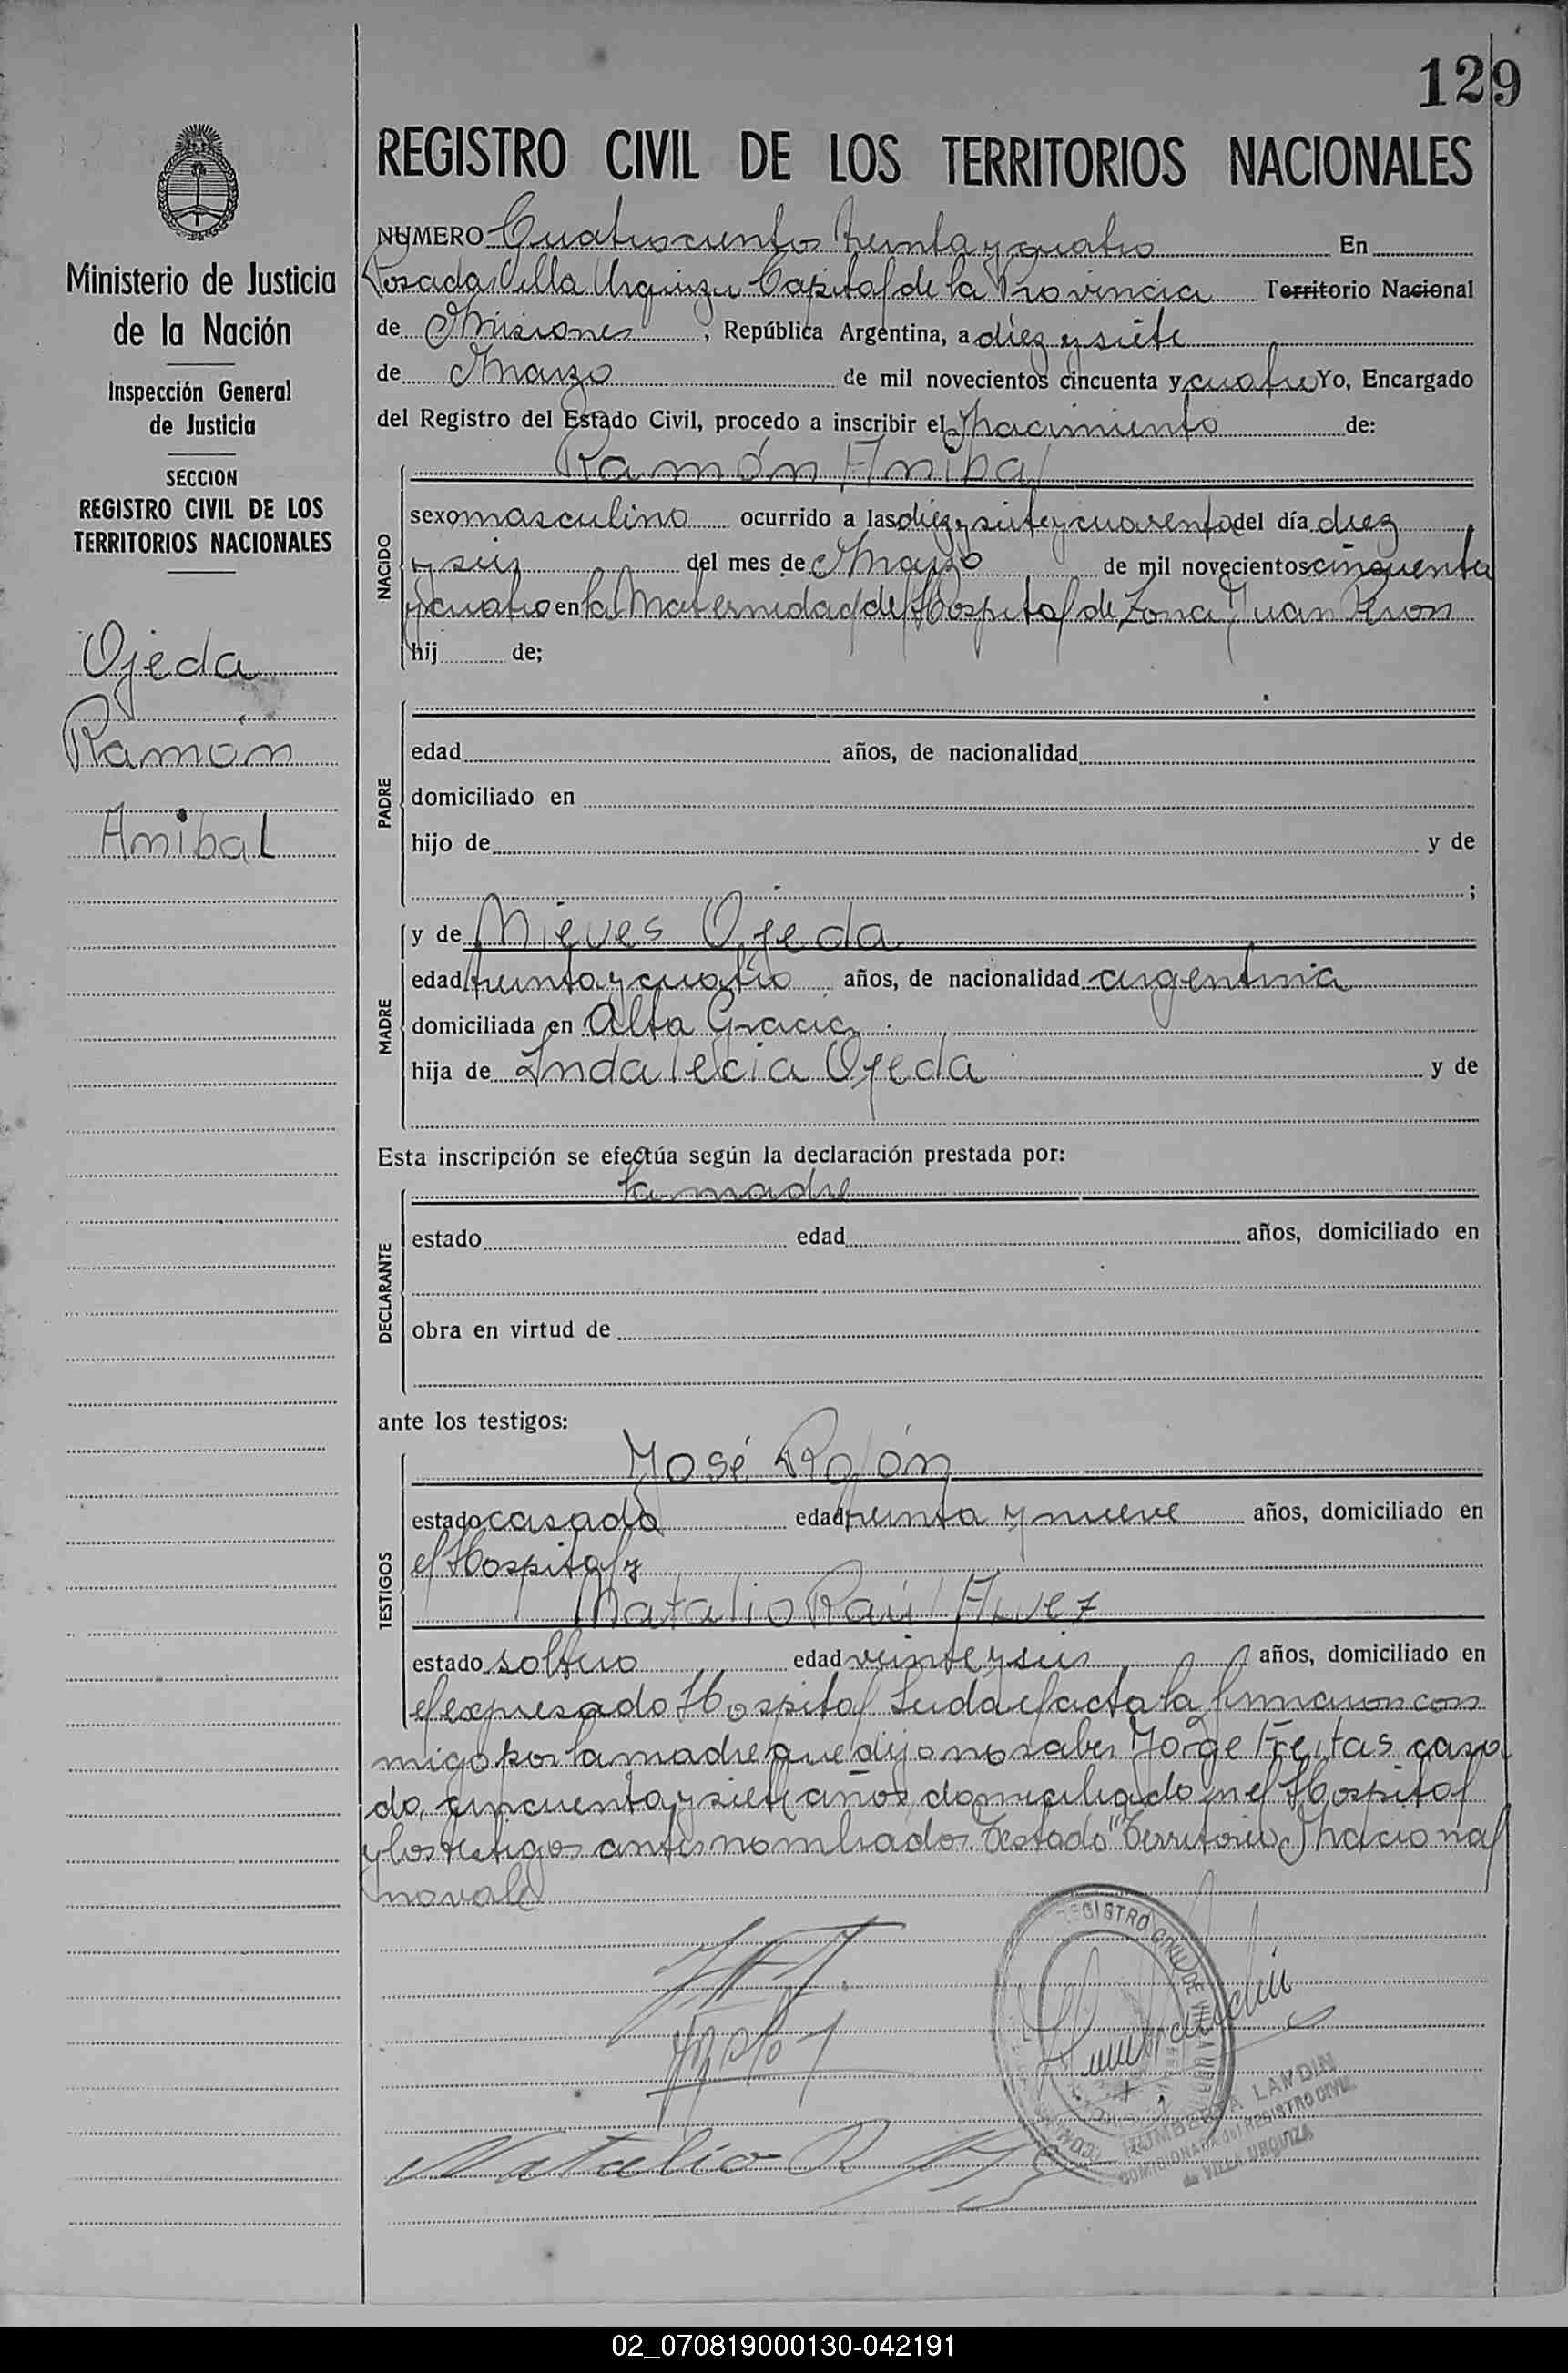 129
REGISTRO CIVIL DE LOS TERRITORIOS NACIONALES
Ministerio de Justicia
de la Nación
Inspección General
de Justicia
SECCION
REGISTRO CIVIL DE LOS
TERRITORIOS NACIONALES
Ojeda
Ramón
Anibal
NUMERO Cuatrocientos treinta y cuatro En
Posadas Villa Urquiza Capital de la Provincia Territorio Nacional
de Misiones, República Argentina, a diez y siete
de Marzo de mil novecientos cincuenta y cuatro Yo, Encargado
del Registro del Estado Civil, procedo a inscribir el Nacimiento de:
Ramón Anibal
NACIDO
sexo masculino ocurrido a las diez y siete y cuarenta del día diez
y seis del mes de Marzo de mil novecientos cincuenta
y cuatro en la Maternidad del Hospital de Zona Juan Peron
hij de;
PADRE
edad años, de nacionalidad
domiciliado en
hijo de y de
;
MADRE
y de Nieves Ojeda
edad treinta y cuatro años, de nacionalidad argentina
domiciliada en Alta Gracia
hija de Indalecia Ojeda y de
Esta inscripción se efectúa según la declaración prestada por:
la madre
DECLARANTE
estado edad años, domiciliado en
obra en virtud de
ante los testigos:
TESTIGOS
José Rolón
estado casado edad treinta y nueve años, domiciliado en
el Hospital y
Natalio Raúl Alvez
estado soltero edad veinte y seis años, domiciliado en
el expresado Hospital Leida el acta la firmaron con
migo por la madre que dijo no saber Jorge Freitas casa
do, cincuenta y siete años domiciliado en el Hospital
y los testigos antes nombrados. Testado "Territorio Nacional
no vale
Natalio R
REGISTRO CIVIL DE VILLA
HUMBERTA LANDIN
COMISIONADA del REGISTRO CIVIL
de VILLA URQUIZA
02_070819000130-042191